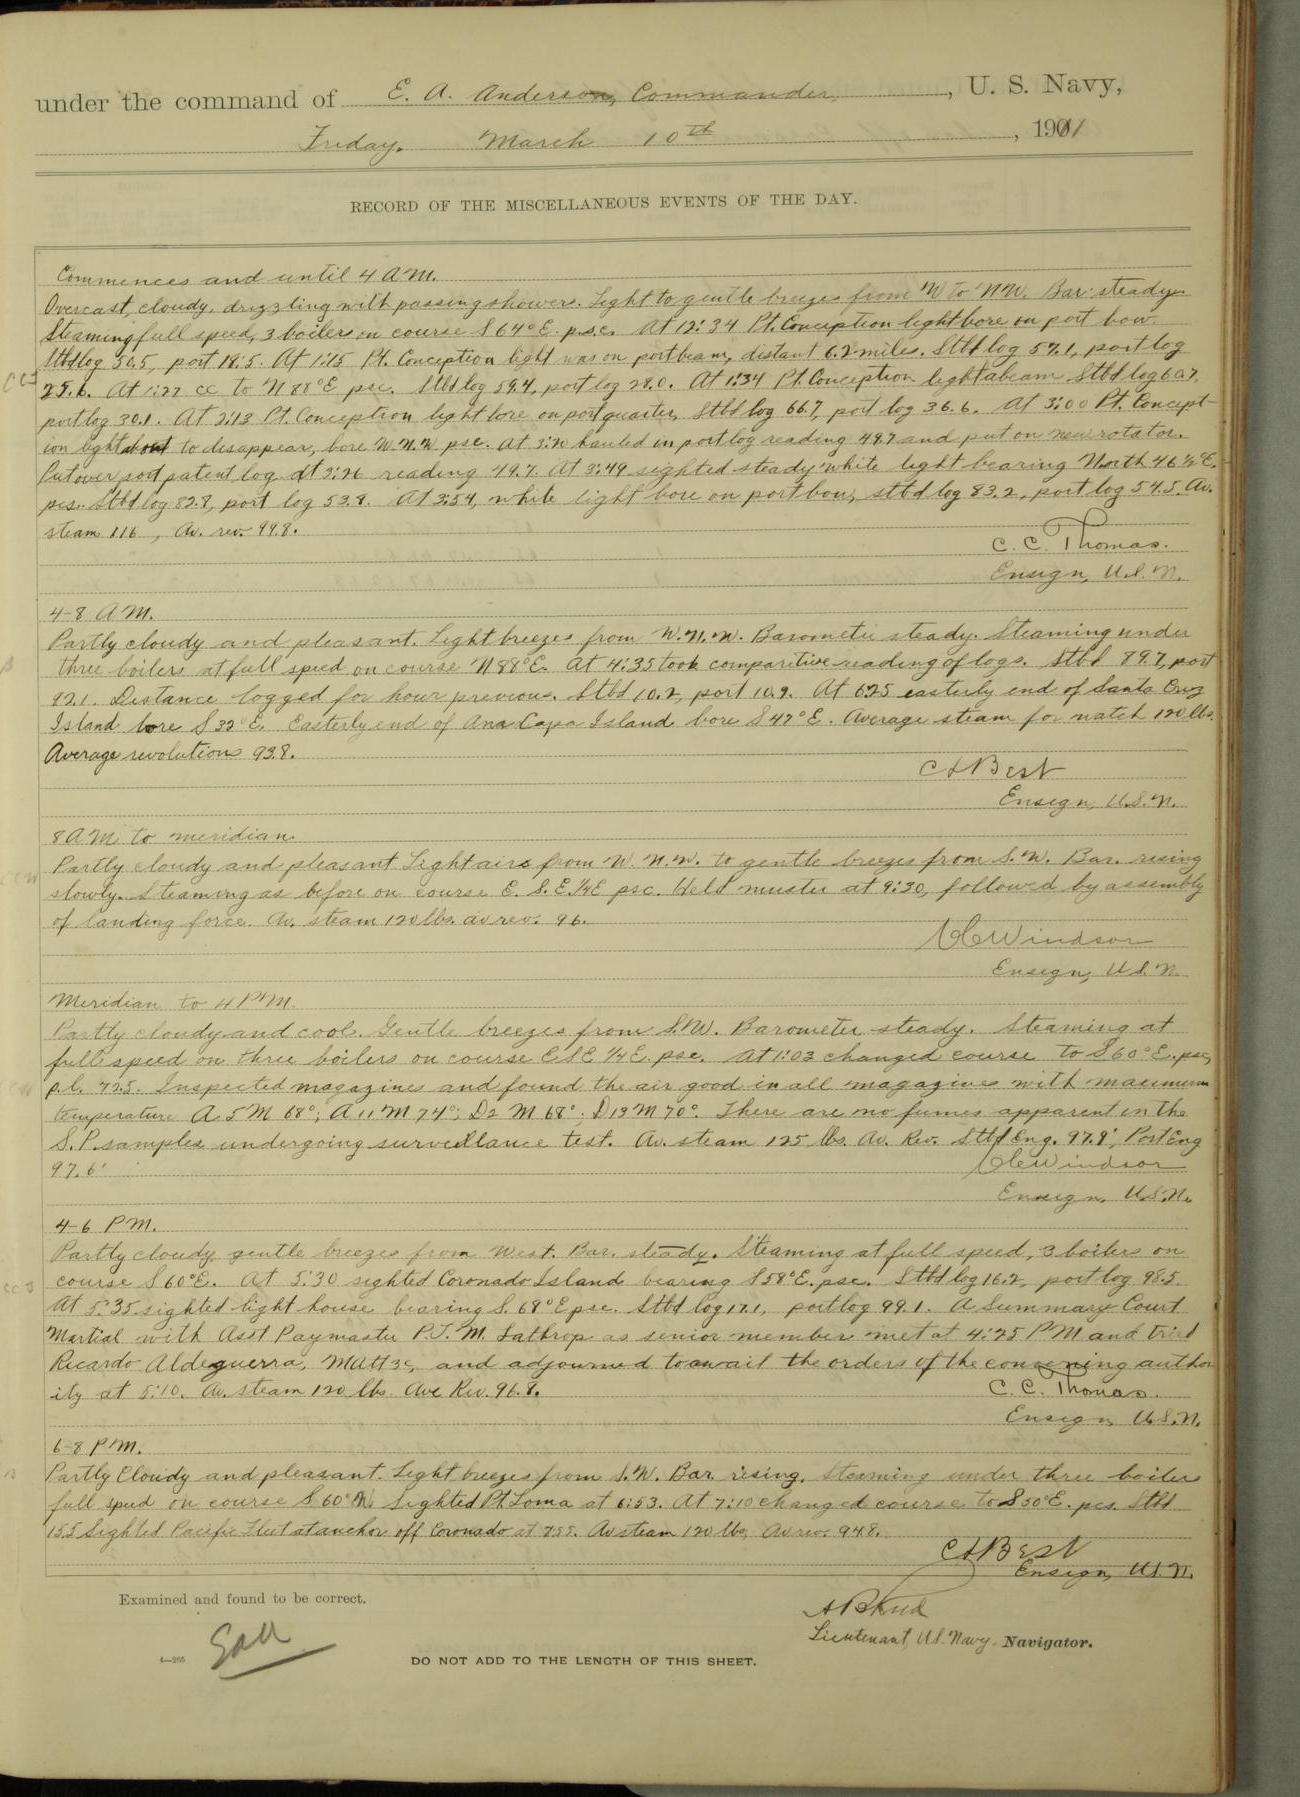 under the command of E. A. Anderson, Commander, , U. S. Navy,
Friday. March 10th , 1911
RECORD OF THE MISCELLANEOUS EVENTS OF THE DAY.
Commences and until 4 A.M.
Overcast, cloudy, drizzling with passing showers. Light to gentle breezes from W to NW. Bar. steady.
Steaming full speed, 3 boilers on course S 64° E. p.s.c. At 12:34 Pt. Conception light bore on port bow.
Stbd log 50.5, port 18.5. At 1:15 Pt. Conception light was on port beam, distant 6.2 miles. Stbd log 57.1, port log
25.6. At 1:27 cc to N 88° E psc. Stbd log 59.4, port log 28.0. At 1:34 Pt. Conception light abeam Stbd log 60.7,
port log 30.1. At 2:13 Pt. Conception light bore on port quarter, Stbd log 66.7, port log 36.6. At 3:00 Pt. Concept-
ion light about to disappear, bore W.N.W. psc. At 3:20 hauled in port log reading 49.7 and put on new rotator.
Put over port patent log at 3:26 reading 49.7. At 3:49 sighted steady white light bearing North 46 1/2° E.
psc. Stbd log 82.8, port log 53.8. At 3:54, white light bore on port bow, stbd log 83.2, port log 54.5. Av.
steam 116, Av. rev. 94.8.
C. C. Thomas.
Ensign, U.S.N.
4-8 A.M.
Partly cloudy and pleasant. Light breezes from W.N.W. Barometer steady. Steaming under
three boilers at full speed on course N 88° E. At 4:35 took comparitive reading of logs. Stbd 89.7, port
92.1. Distance logged for hour previous. Stbd 10.2, port 10.9. At 6:25 easterly end of Santa Cruz
Island bore S 32° E. Easterly end of Ana Capa Island bore S 47° E. Average steam for watch 120 lbs.
Average revolutions 93.8.
C H Best
Ensign, U.S.N.
8 A M to meridian.
Partly cloudy and pleasant Light airs from W. N.W. to gentle breezes from S.W. Bar. rising
slowly. Steaming as before on course E. S. E. 1/4 E psc. Held muster at 9:30, followed by assembly
of landing force. Av. steam 120 lbs. av rev. 96.
Windsor
Ensign, U.S.N.
Meridian to 4 P.M.
Partly cloudy and cool. Gentle breezes from S.W. Barometer steady. Steaming at
full speed on three boilers on course E S E 1/4 E. psc. At 1:03 changed course to S 60° E. psc,
p.l. 72.5. Inspected magazines and found the air good in all magazines with maximum
temperature A 5 M 68°; A 11 M 74°; D2 M 68°; D13 M 70°. There are no fumes apparent in the
S.P. samples undergoing surveillance test. Av. steam 125 lbs. Av. Rev. Stbd Eng. 97.9', Port Eng
97.6'
Windsor
Ensign, U.S.N.
4-6 P M.
Partly cloudy, gentle breezes from West. Bar. steady. Steaming at full speed, 3 boilers on
course S 60° E. At 5:30 sighted Coronado Island bearing S 58° E. psc. Stbd log 16.2, port log 98.5.
At 5:35 sighted light house bearing S. 68° E psc. Stbd log 17.1, port log 99.1. A Summary Court
Martial with Asst Paymaster P.T. M. Lathrop as senior member met at 4:25 P M and tried
Ricardo Aldeguerra, Matt 3c, and adjourned to await the orders of the convening author
ity at 5:10. Av. steam 120 lbs. Ave Rev. 96.8.
C. C. Thomas.
Ensign, U.S.N.
6-8 P M.
Partly Cloudy and pleasant. Light breezes from S.W. Bar. rising. Steaming under three boilers
full speed on course S 60° W. Sighted Pt. Loma at 6:53. At 7:10 changed course to S 50° E. psc. Stbd
15.5 Sighted Pacific Fleet at anchor off Coronado at 7:55. Av steam 120 lbs, Av rev. 94.8.
C H Best
Ensign, U.S.N.
Examined and found to be correct.
Lieutenant, U.S. Navy. Navigator.
4—265
DO NOT ADD TO THE LENGTH OF THIS SHEET.